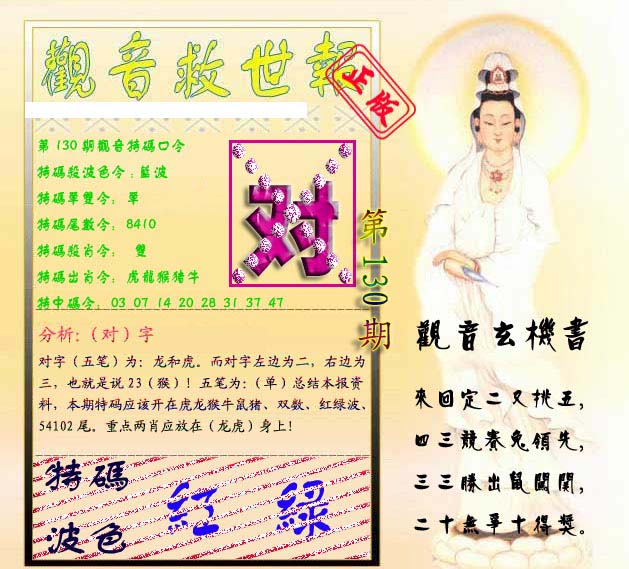 觀音救世報
正版
第130期觀音特碼口令
特碼殺波色令:藍波
特碼單雙令: 單
特碼尾數令: 8410
特碼殺肖令: 雙
特碼出肖令: 虎龍猴猪牛
特中碼令: 03 07 14 20 28 31 37 47
对
第130期
分析:(对)字
对字（五笔）为：龙和虎。而对字左边为二，右边为
三，也就是说23（猴）！五笔为：（单）总结本报资
料，本期特码应该开在虎龙猴牛鼠猪、双数、红绿波、
54102尾。重点两肖应放在（龙虎）身上！
特碼
波色
紅 綠
觀音玄機書
來回定二又挑五,
四三競賽兔領先,
三三勝出鼠闖關,
二十無爭十得獎。